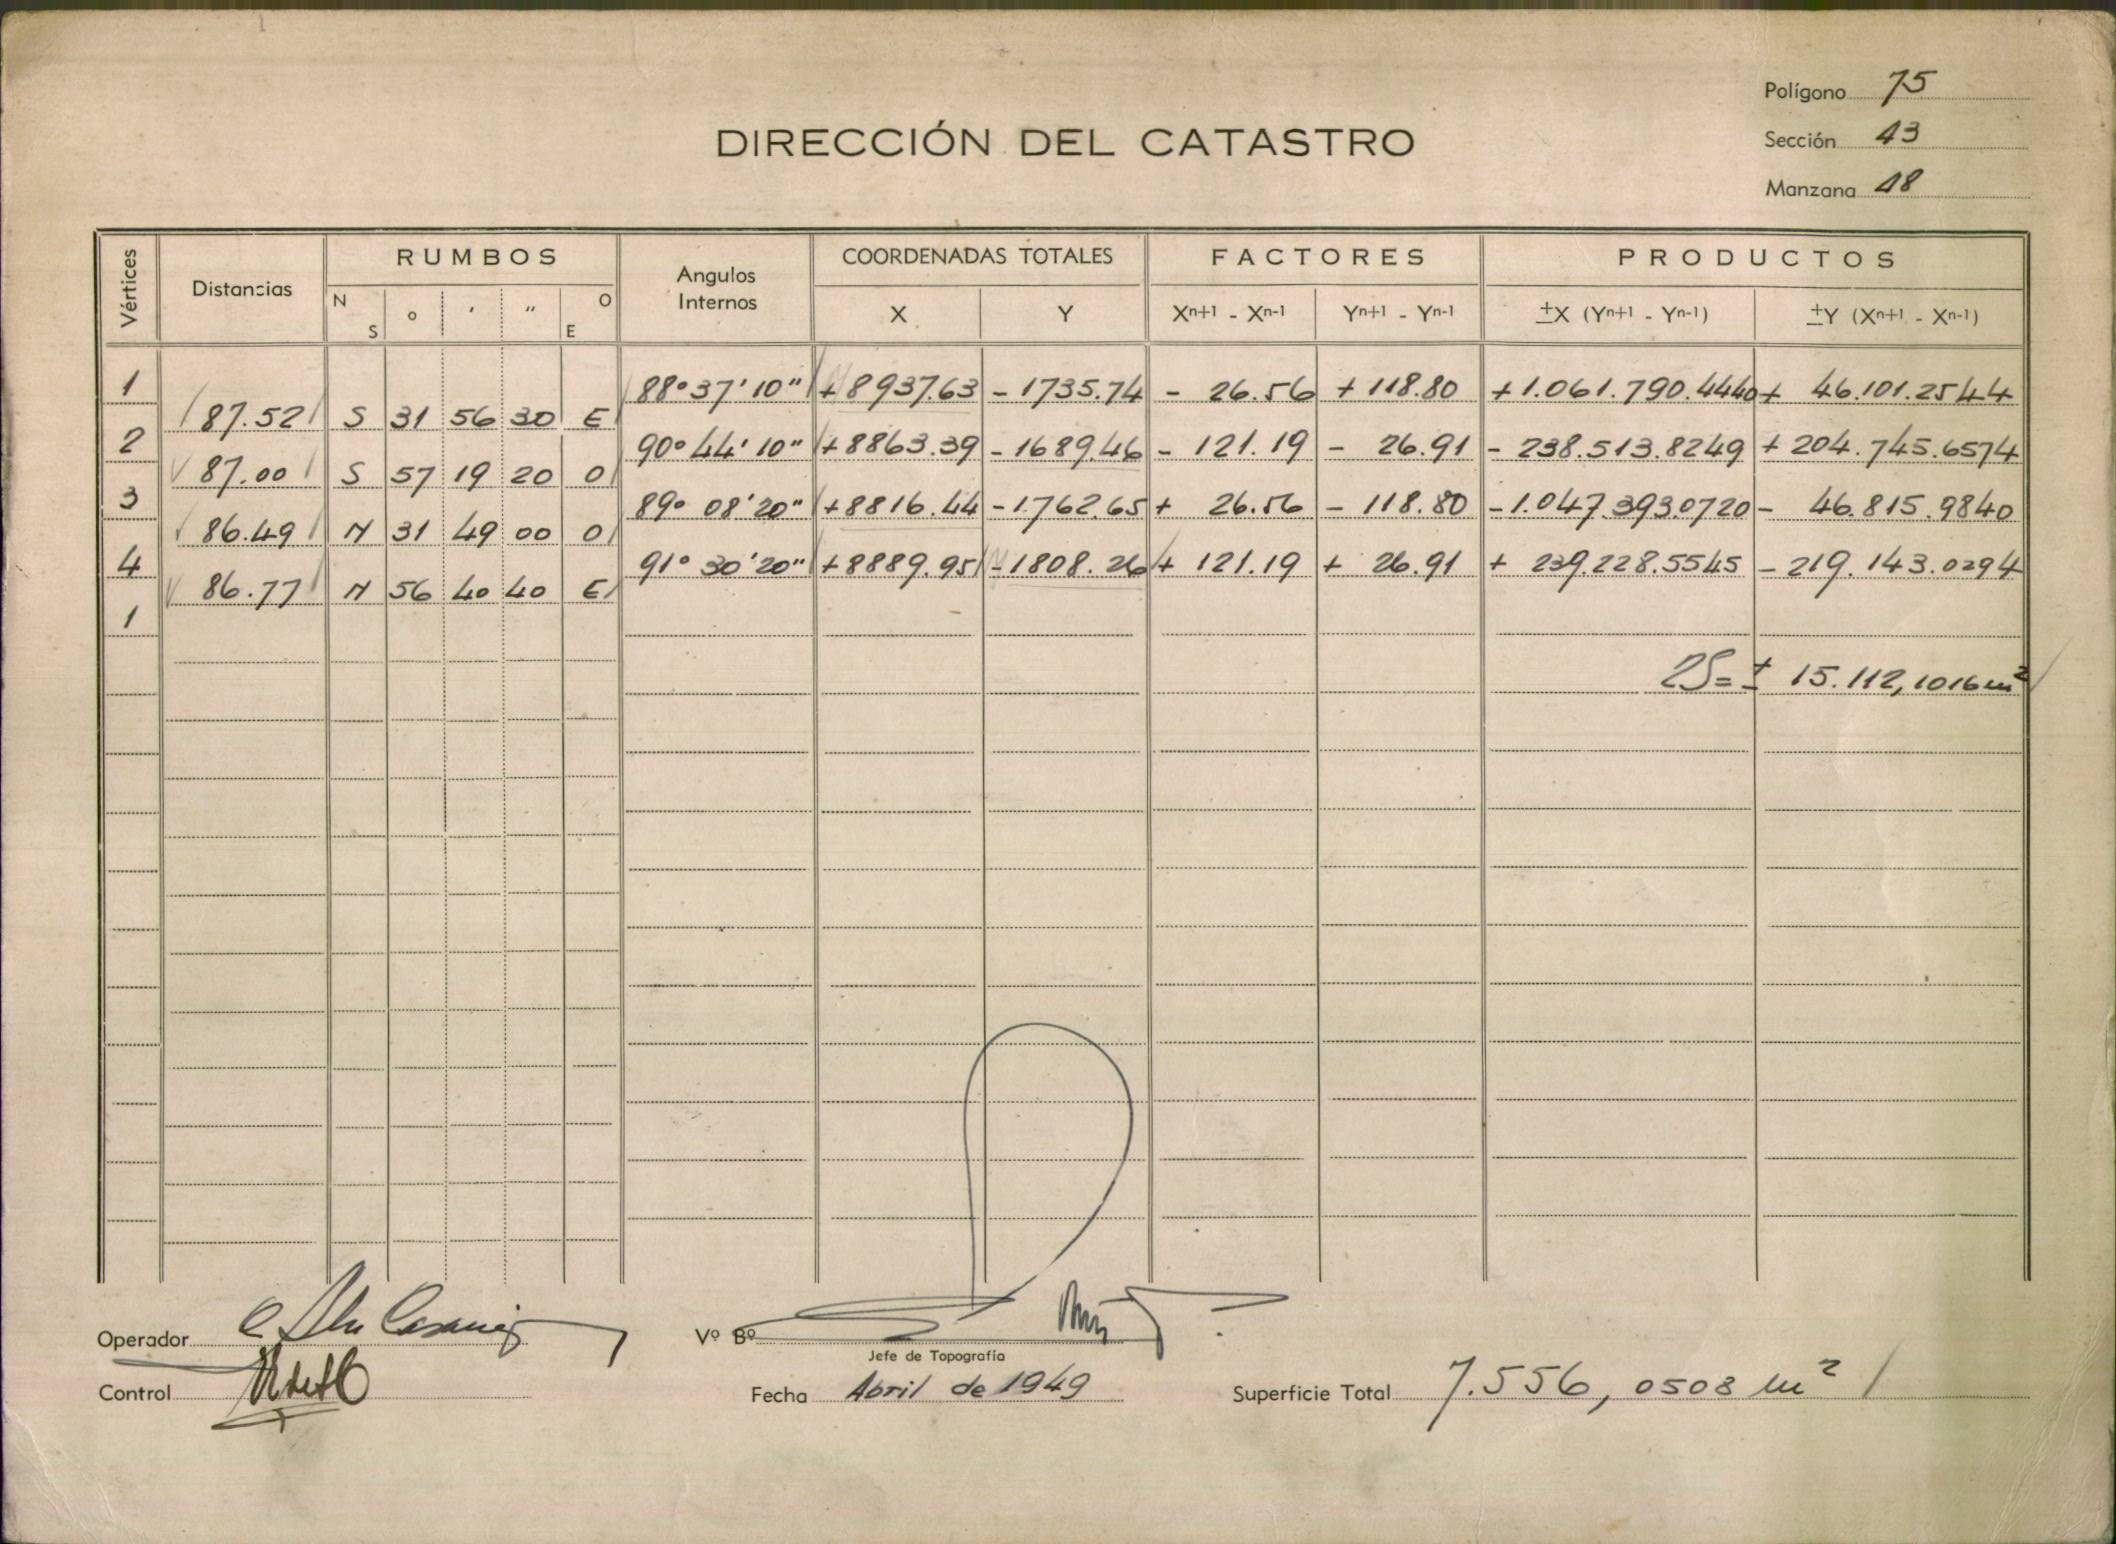 Polígono 75
DIRECCIÓN DEL CATASTRO
Sección 43
Manzana 48
Vértices Distancias RUMBOS Angulos Internos COORDENADAS TOTALES FACTORES PRODUCTOS
N S o ' '' O E X Y Xn+1 - Xn-1 Yn+1 - Yn-1 ±X (Yn+1 - Yn-1) ±Y (Xn+1 - Xn-1)
1 88° 37' 10" +8937.63 -1735.74 - 26.56 + 118.80 +1.061.790.4440 + 46.101.2544
87.52 S 31 56 30 E
2 90° 44' 10" +8863.39 -1689.46 - 121.19 - 26.91 - 238.513.8249 + 204.745.6574
87.00 S 57 19 20 O
3 89° 08' 20" +8816.44 -1762.65 + 26.56 - 118.80 -1.047.393.0720 - 46.815.9840
86.49 N 31 49 00 O
4 91° 30' 20" +8889.95 -1808.26 + 121.19 + 26.91 + 239.228.5545 - 219.143.0294
86.77 N 56 40 40 E
1
2S = ± 15.112,1016 m²
Operador
Vº Bº
Jefe de Topografía
Control
Fecha Abril de 1949
Superficie Total 7.556,0508 m²